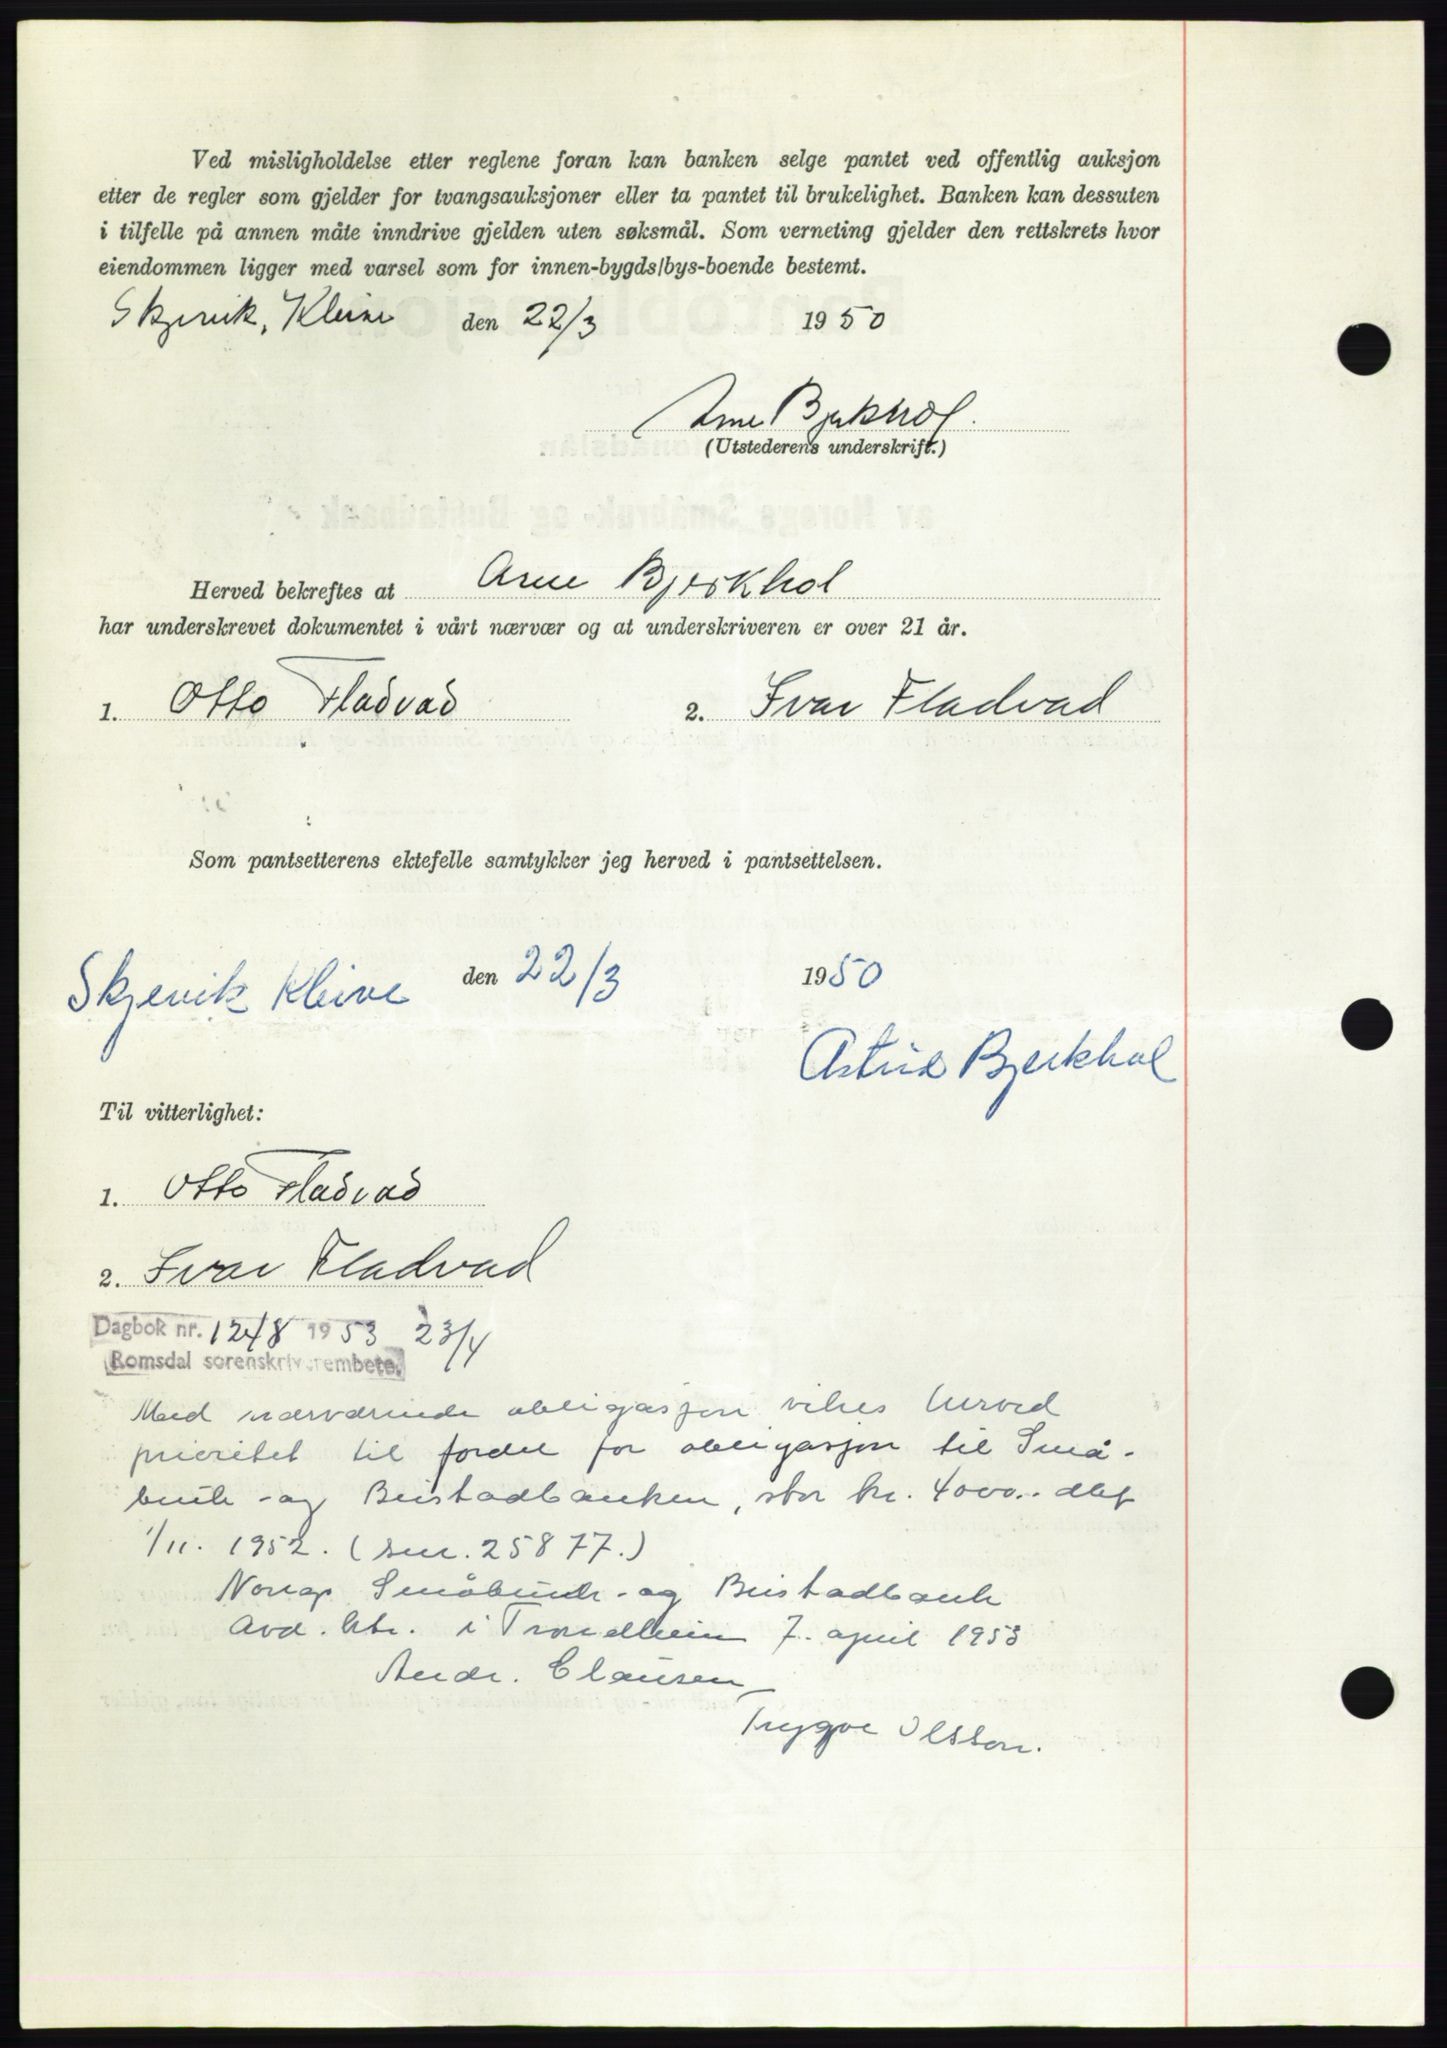 Ved misligholdelse etter reglene foran kan banken selge pantet ved offentlig auksjon
etter de regler som gjelder for tvangsauksjoner eller ta pantet til brukelighet. Banken kan dessuten
i tilfelle på annen måte inndrive gjelden uten søksmål. Som verneting gjelder den rettskrets hvor
eiendommen ligger med varsel som for innen-bygds/bys-boende bestemt.
Skjevik, Kleive den 22/3 1950
Arne Bjerkhol.
(Utstederens underskrift.)
Herved bekreftes at Arne Bjerkhol
har underskrevet dokumentet i vårt nærvær og at underskriveren er over 21 år.
1. Otto Fladvad 2. Ivar Fladvad
Som pantsetterens ektefelle samtykker jeg herved i pantsettelsen.
Skjevik Kleive den 22/3 1950
Astrid Bjerkhol
Til vitterlighet:
1. Otto Fladvad
2. Ivar Fladvad
Dagbok nr. 1248 1953 23/4
Romsdal sorenskriverembete.
Med nærværende obligasjon vikes herved
prioritet til fordel for obligasjon til Små-
bruk- og Bustadbanken, stor kr. 4000.- dat
1/11. 1952. (ser. 25877.)
Noregs Småbruk- og Bustadbank
Avd. ktr. i Trondheim 7. april 1953
Andr. Clausen
Trygve Olsson.